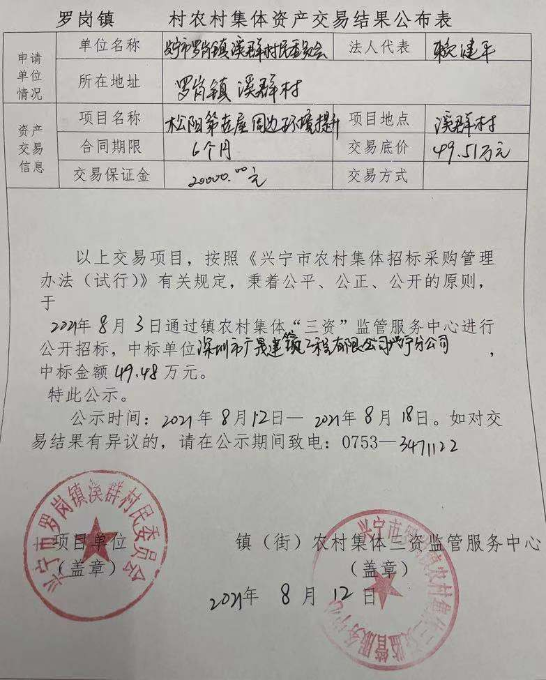 罗岗镇 村农村集体资产交易结果公布表
申请单位情况
单位名称 兴宁市罗岗镇溪群村民委员会 法人代表 赖建平
所在地址 罗岗镇溪群村
资产交易信息
项目名称 松阳第 屋周边环境提升 项目地点 溪群村
合同期限 6个月 交易底价 49.51万元
交易保证金 20000.00元 交易方式
以上交易项目，按照《兴宁市农村集体招标采购管理
办法（试行）》有关规定，秉着公平、公正、公开的原则，
于
2021年8月3日通过镇农村集体“三资”监管服务中心进行
公开招标，中标单位深圳市广晟建筑工程有限公司兴宁分公司，
中标金额49.48万元。
特此公示。
公示时间：2021年8月12日—2021年8月18日。如对交
易结果有异议的，请在公示期间致电：0753—3471122
项目单位 镇（街）农村集体三资监管服务中心
（盖章） （盖章）
2021年8月12日
兴宁市罗岗镇溪群村民委员会
兴宁市罗岗镇农村集体三资监管服务中心